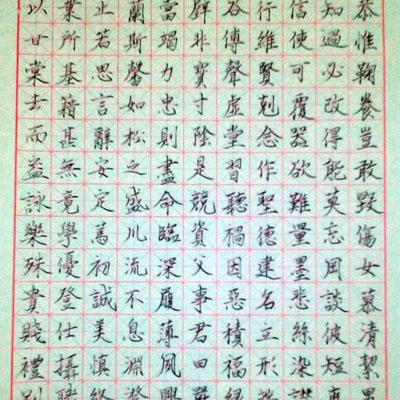 恭惟鞠養豈敢毀傷女慕清絜
知過必改得能莫忘罔談彼短
信使可覆器欲難量墨悲絲染
行維賢剋念作聖德建名立形
谷傳聲虛堂習聽禍因惡積福緣
璧非寶寸陰是競資父事君曰嚴
當竭力忠則盡命臨深履薄夙興
蘭斯馨如松之盛川流不息淵澄
止若思言辭安定篤初誠美慎終
業所基籍甚無竟學優登仕攝職
以甘棠去而益詠樂殊貴賤禮別